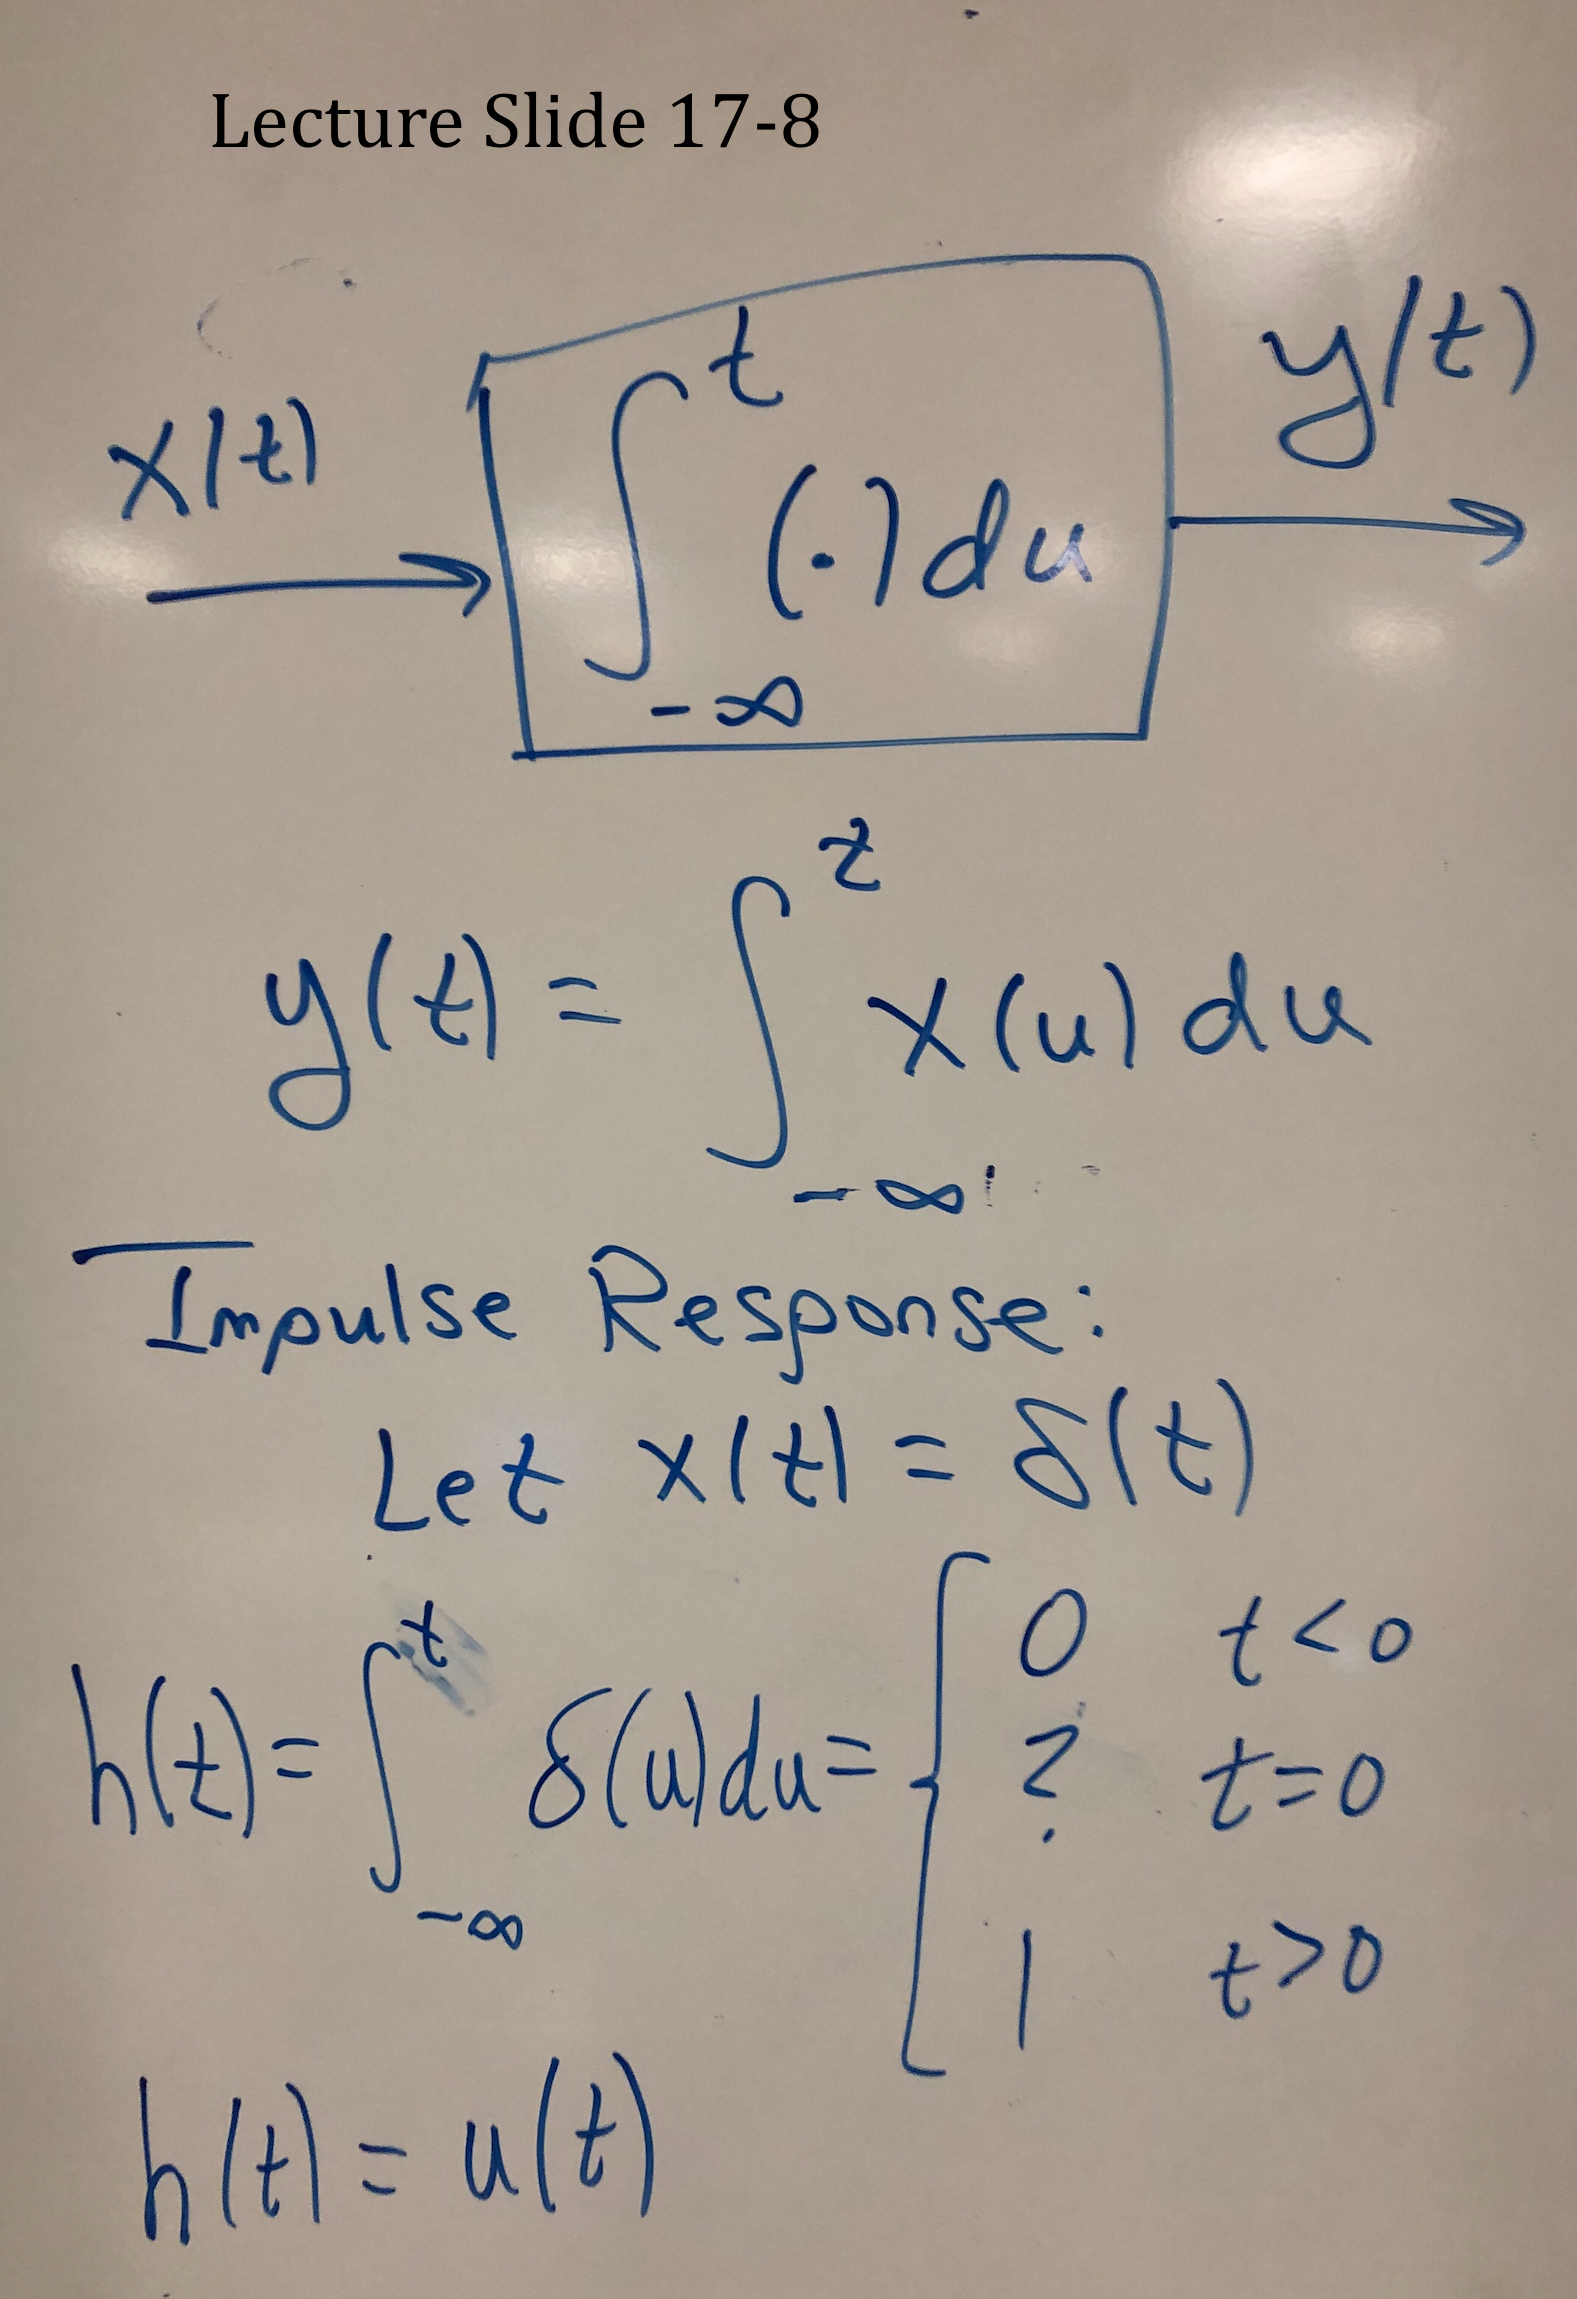 Lecture Slide 17-8
x(t)
∫_{-∞}^{t} (·) du
y(t)
y(t) = ∫_{-∞}^{t} x(u) du
Impulse Response:
Let x(t) = δ(t)
h(t) = ∫_{-∞}^{t} δ(u) du = { 0 t<0
? t=0
1 t>0
h(t) = u(t)